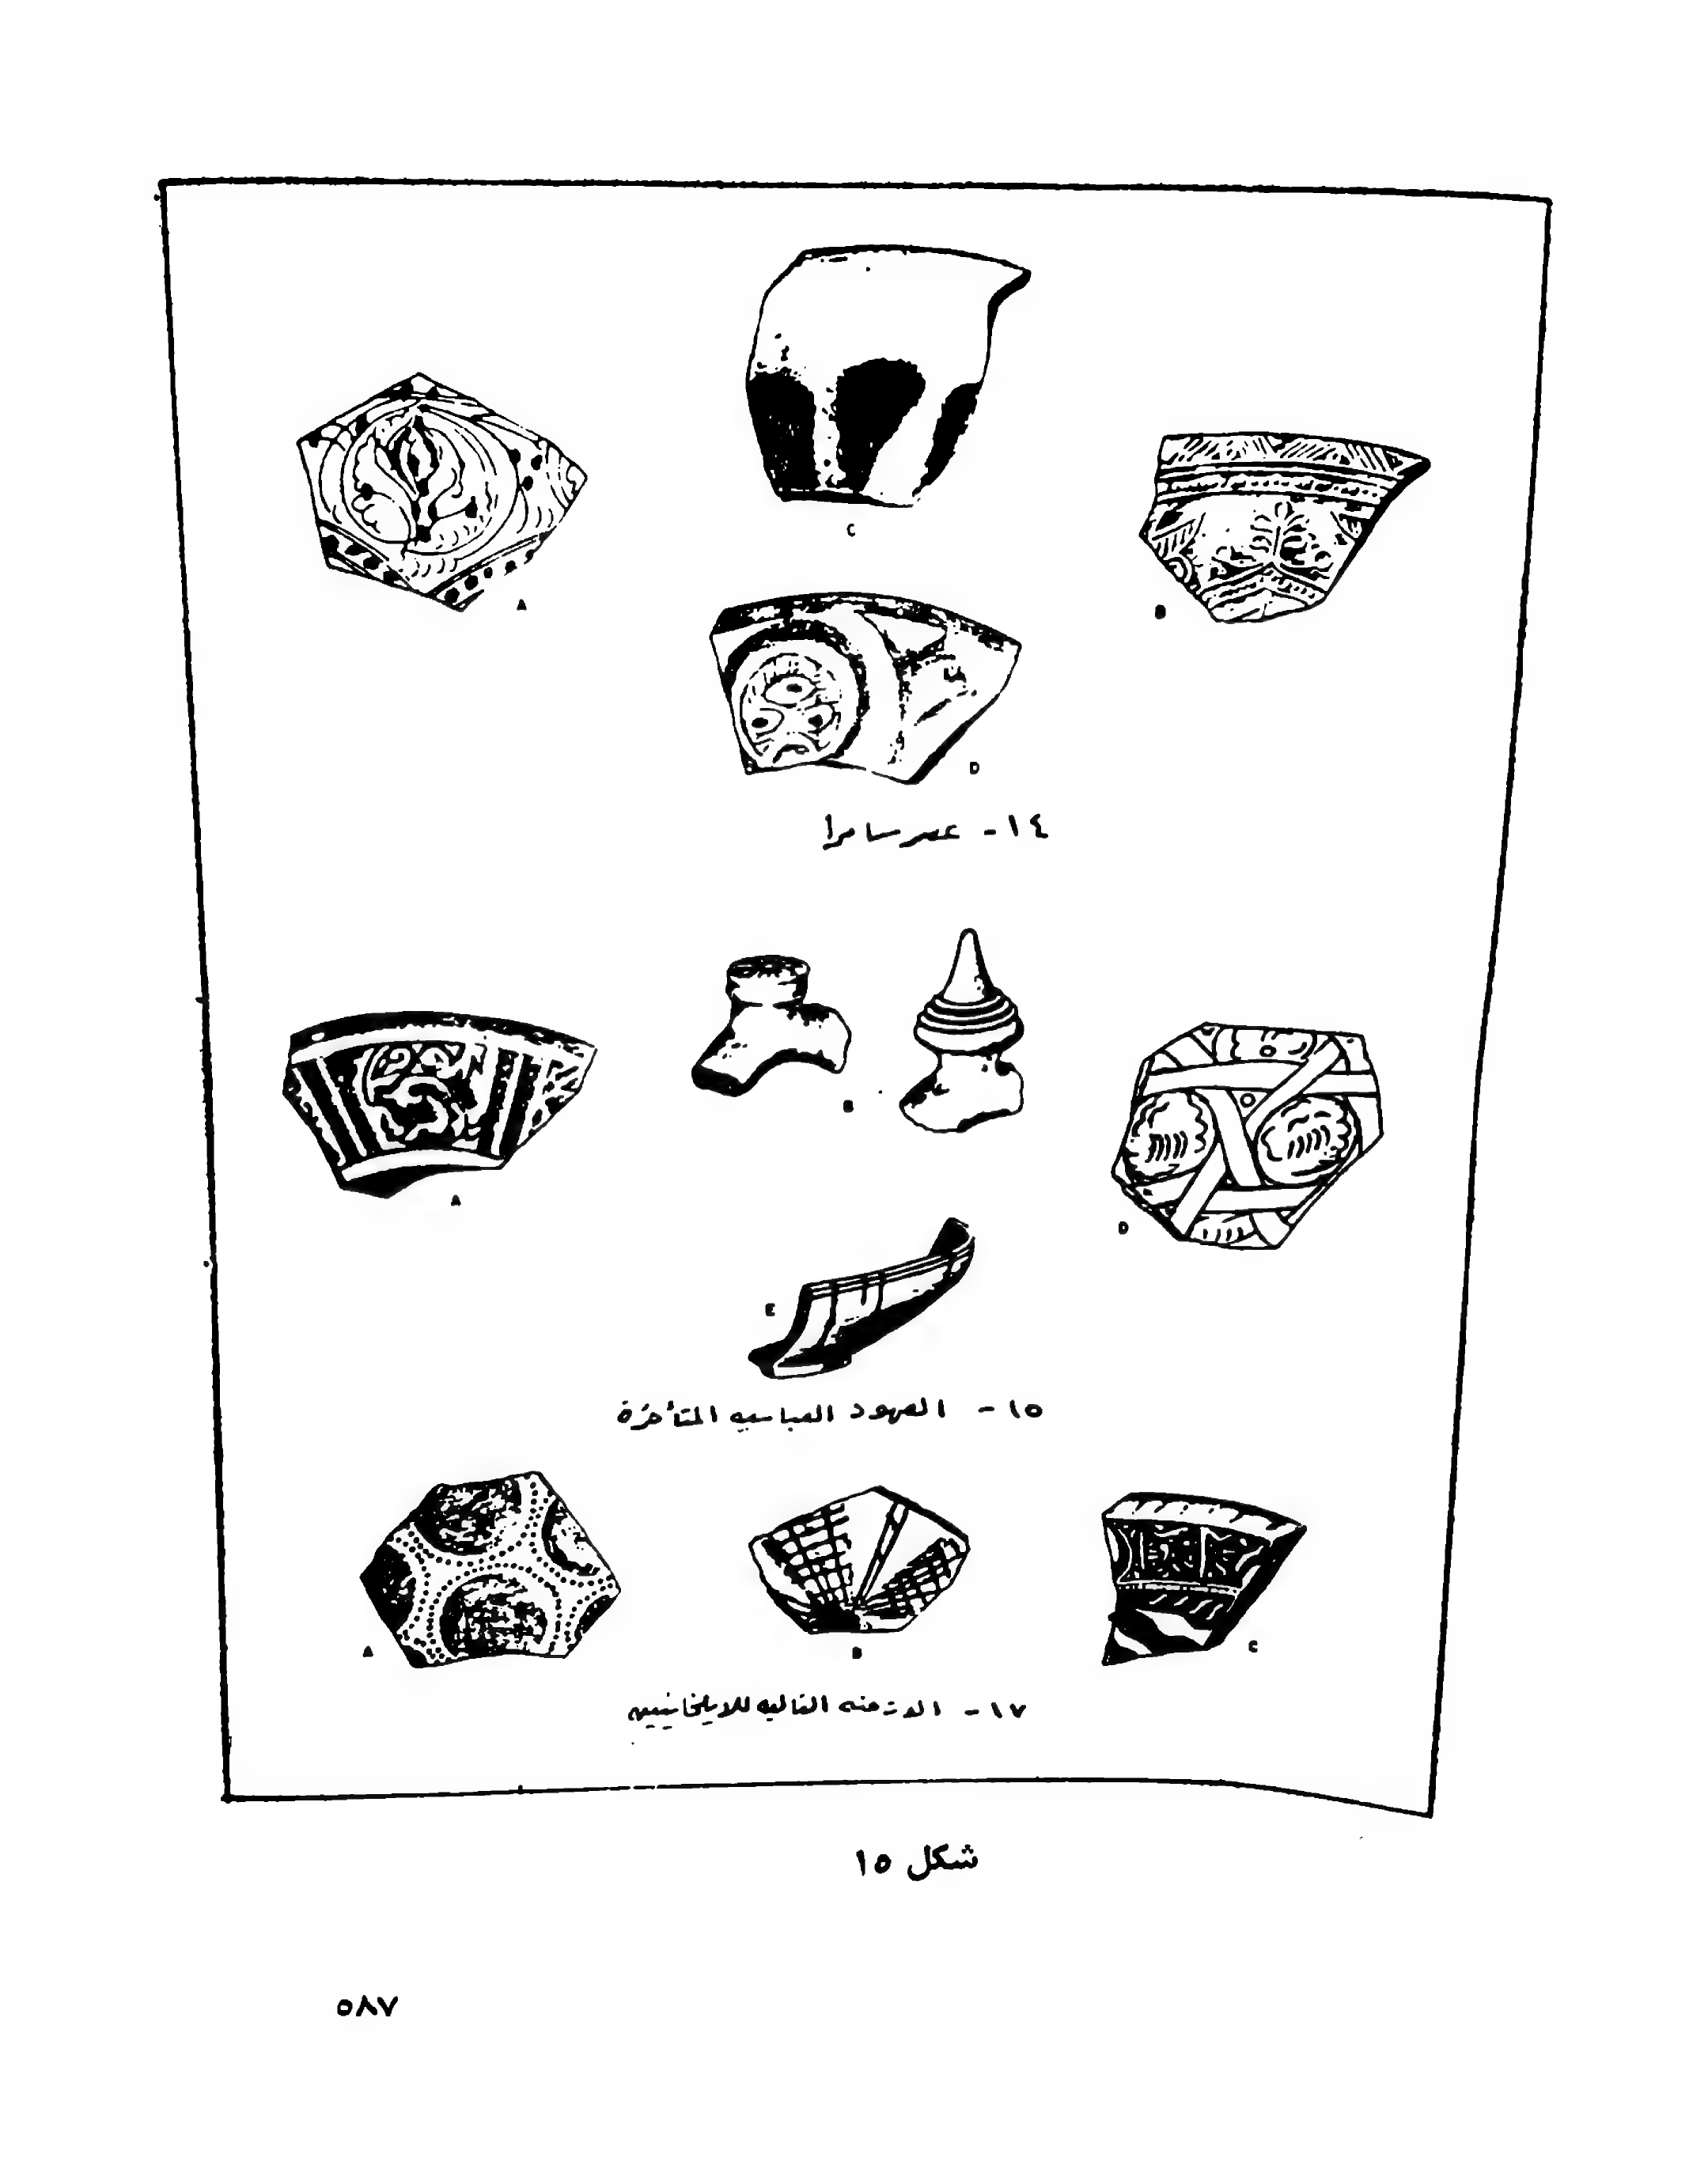 C
A
B
D
١٤- عصر سامرا
B
A
D
E
١٥- العهود العباسيه المتأخرة
A
B
C
١٧- الازمنه التاليه للايلخانيين
شكل ١٥
٥٨٧